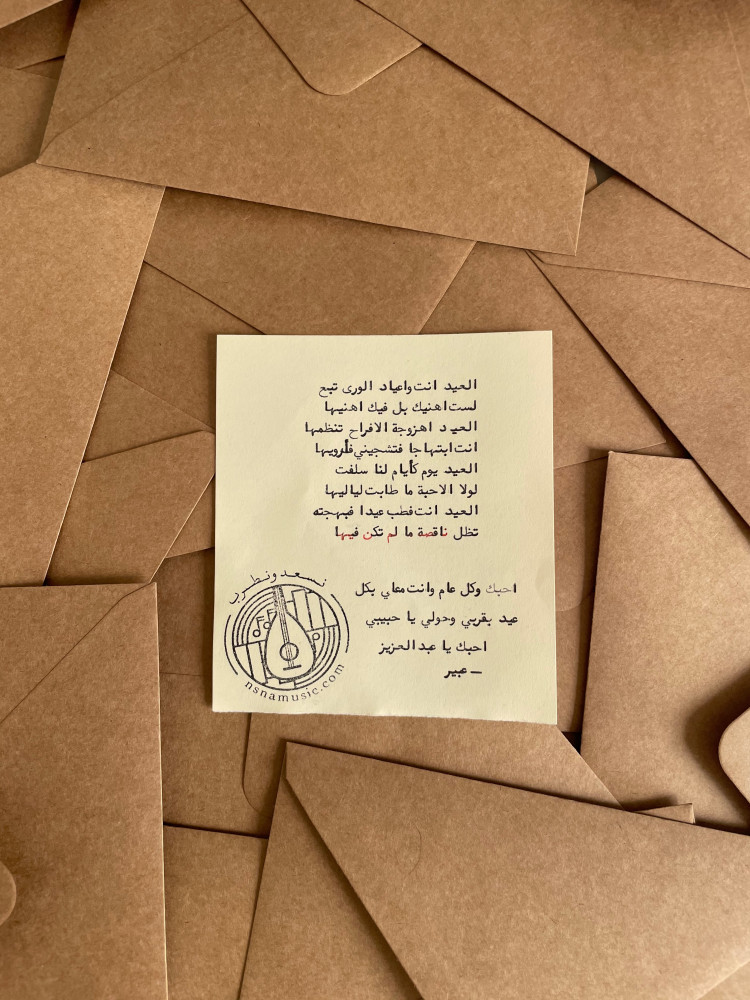 العيد انت واعياد الورى تبع
لست اهنيك بل فيك اهنيها
العيد اهزوجة الافراح تنظمها
انت ابتهاجا فتشجيني فأرويها
العيد يوم كأيام لنا سلفت
لولا الاحبة ما طابت لياليها
العيد انت فطب عيدا فبهجته
تظل ناقصة ما لم تكن فيها
احبك وكل عام وانت معاي بكل
عيد بقربي وحولي يا حبيبي
احبك يا عبدالعزيز
— عبير
نسعد ونطرب
nsnamusic.com